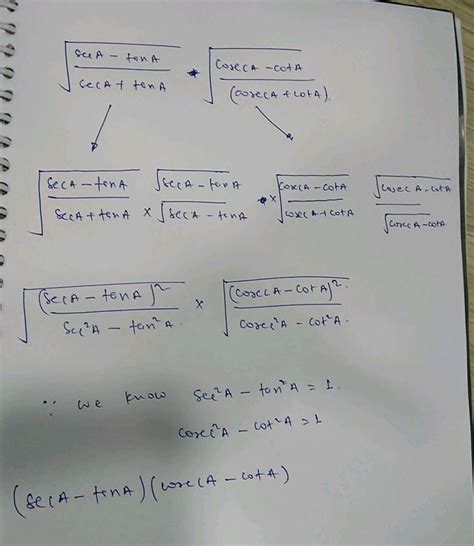 √((secA − tanA)/(secA + tanA)) * √((cosecA − cotA)/(cosecA + cotA)).
√((secA − tanA)/(secA + tanA)) × √(secA − tanA)/√(secA − tanA) × √((cosecA − cotA)/(cosecA + cotA)) √(cosecA − cotA)/√(cosecA − cotA)
√((secA − tanA)²/(sec²A − tan²A)) × √((cosecA − cotA)²/(cosec²A − cot²A)).
∵ we know sec²A − tan²A = 1.
cosec²A − cot²A = 1
(secA − tanA)(cosecA − cotA)